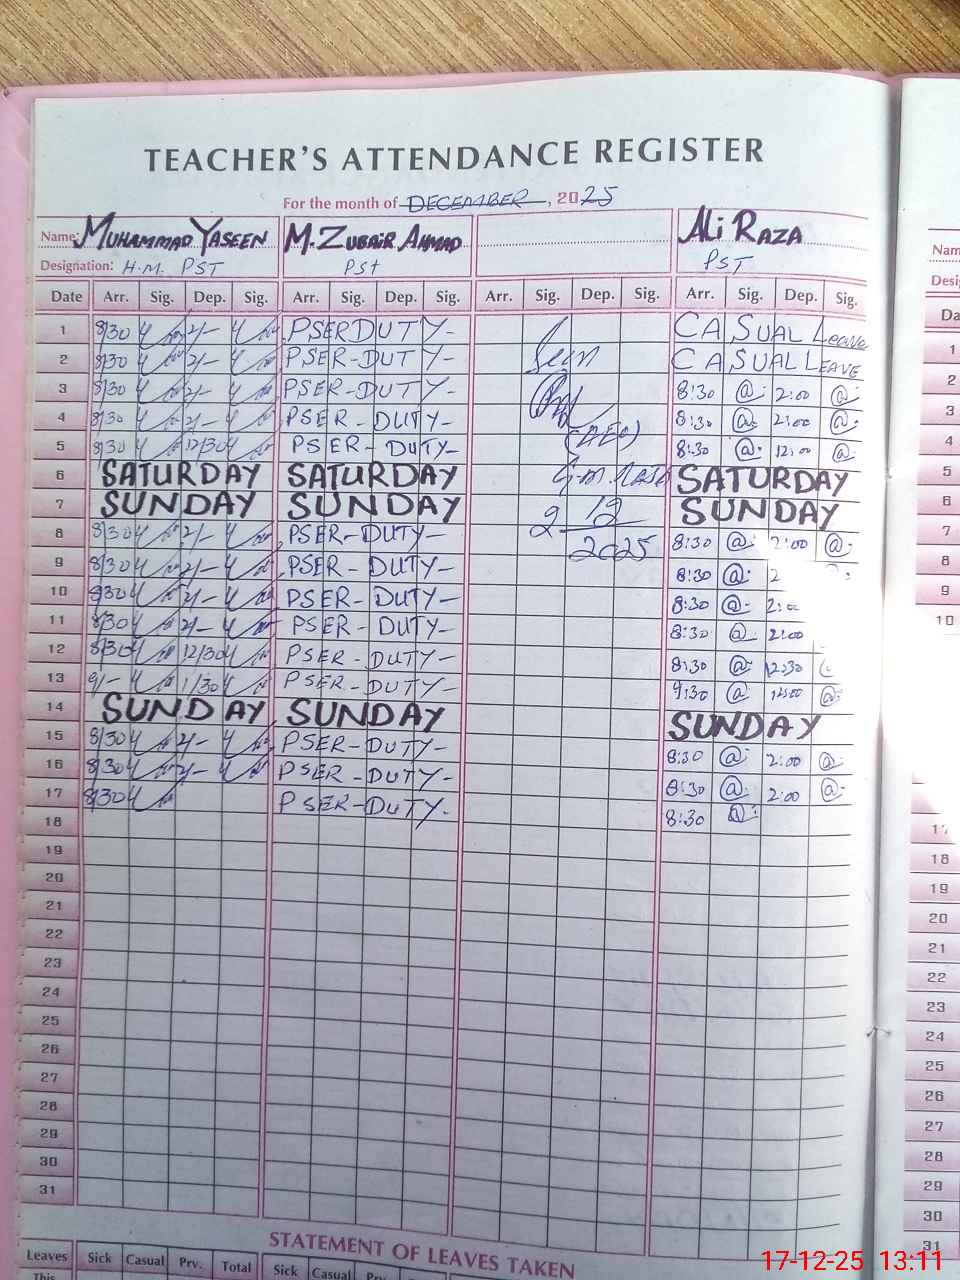 TEACHER'S ATTENDANCE REGISTER
For the month of DECEMBER, 2025
Name: MUHAMMAD YASEEN M. ZUBAIR AHMAD ALI RAZA
Designation: H.M. PST PST PST
Date Arr. Sig. Dep. Sig. Arr. Sig. Dep. Sig. Arr. Sig. Dep. Sig. Arr. Sig. Dep. Sig.
1 8/30 2/- PSER DUTY- CASUAL Leave
2 8/30 2/- PSER-DUTY- Seen CASUAL LEAVE
3 8/30 2/- PSER-DUTY- 8:30 @ 2:00 @
4 8/30 2/- PSER-DUTY- 8:30 @ 2:00 @
5 8/30 12/30 PSER-DUTY- (AEO) 8:30 @ 12:00 @
6 SATURDAY SATURDAY SATURDAY
7 SUNDAY SUNDAY 2 12 SUNDAY
8 8/30 2/- PSER-DUTY- 2025 8:30 @ 2:00 @
9 8/30 2/- PSER-DUTY- 8:30 @ 2
10 8/30 2/- PSER-DUTY- 8:30 @ 2:0
11 8/30 2/- PSER-DUTY- 8:30 @ 2:00
12 8/30 12/30 PSER-DUTY- 8:30 @ 12:30
13 9/- 1/30 PSER-DUTY- 9:30 @ @
14 SUNDAY SUNDAY SUNDAY
15 8/30 2/- PSER-DUTY- 8:30 @ 2:00 @
16 8/30 2/- PSER-DUTY- 8:30 @ 2:00 @
17 8/30 PSER-DUTY. 8:30 @
18
19
20
21
22
23
24
25
26
27
28
29
30
31
STATEMENT OF LEAVES TAKEN
Leaves Sick Casual Prv. Total Sick Casual Prv. Total
This
Nam
Desig
Da
1
2
3
4
5
6
7
8
9
10
17
18
19
20
21
22
23
24
25
26
27
28
29
30
31
17-12-25 13:11